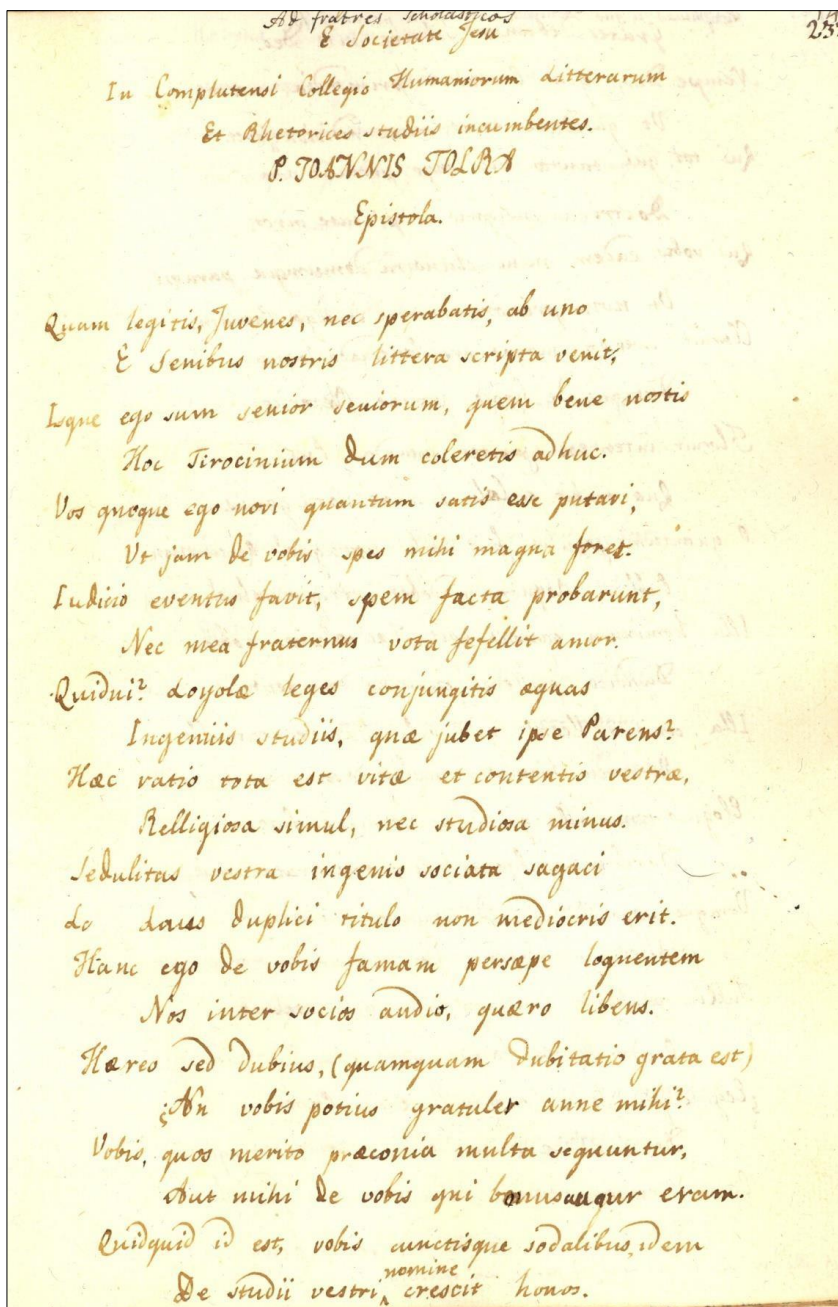 Ad fratres scholasticos
E Societate Jesu
23
In Complutensi Collegio Humaniorum Litterarum
Et Rhetorices studiis incumbentes.
P. JOANNIS TOLRA
Epistola.
Quam legitis, Juvenes, nec sperabatis, ab uno
E Senibus nostris littera scripta venit;
Isque ego sum senior seniorum, quem bene nostis
Hoc Tirocinium dum coleretis adhuc.
Vos quoque ego novi quantum satis esse putavi,
Ut jam de vobis spes mihi magna foret.
Iudicio eventus favit, spem facta probarunt,
Nec mea fraternus vota fefellit amor.
Quidni? Loyolæ leges conjungitis æquas
Ingeniis studiis, quæ jubet ipse Parens?
Hæc ratio tota est vitæ et contentis vestræ,
Relligiosa simul, nec studiosa minus.
Sedulitas vestra ingenio sociata sagaci
Laus duplici titulo non mediocris erit.
Hanc ego de vobis famam persæpe loquentem
Nos inter socios audio, quæro libens.
Hæreo sed dubius, (quamquam dubitatio grata est)
¿An vobis potius gratuler anne mihi?
Vobis, quos merito præconia multa sequuntur,
Aut mihi de vobis qui bonus augur eram.
Quidquid id est, vobis cunctisque sodalibus idem
De studii vestri nomine crescit honos.